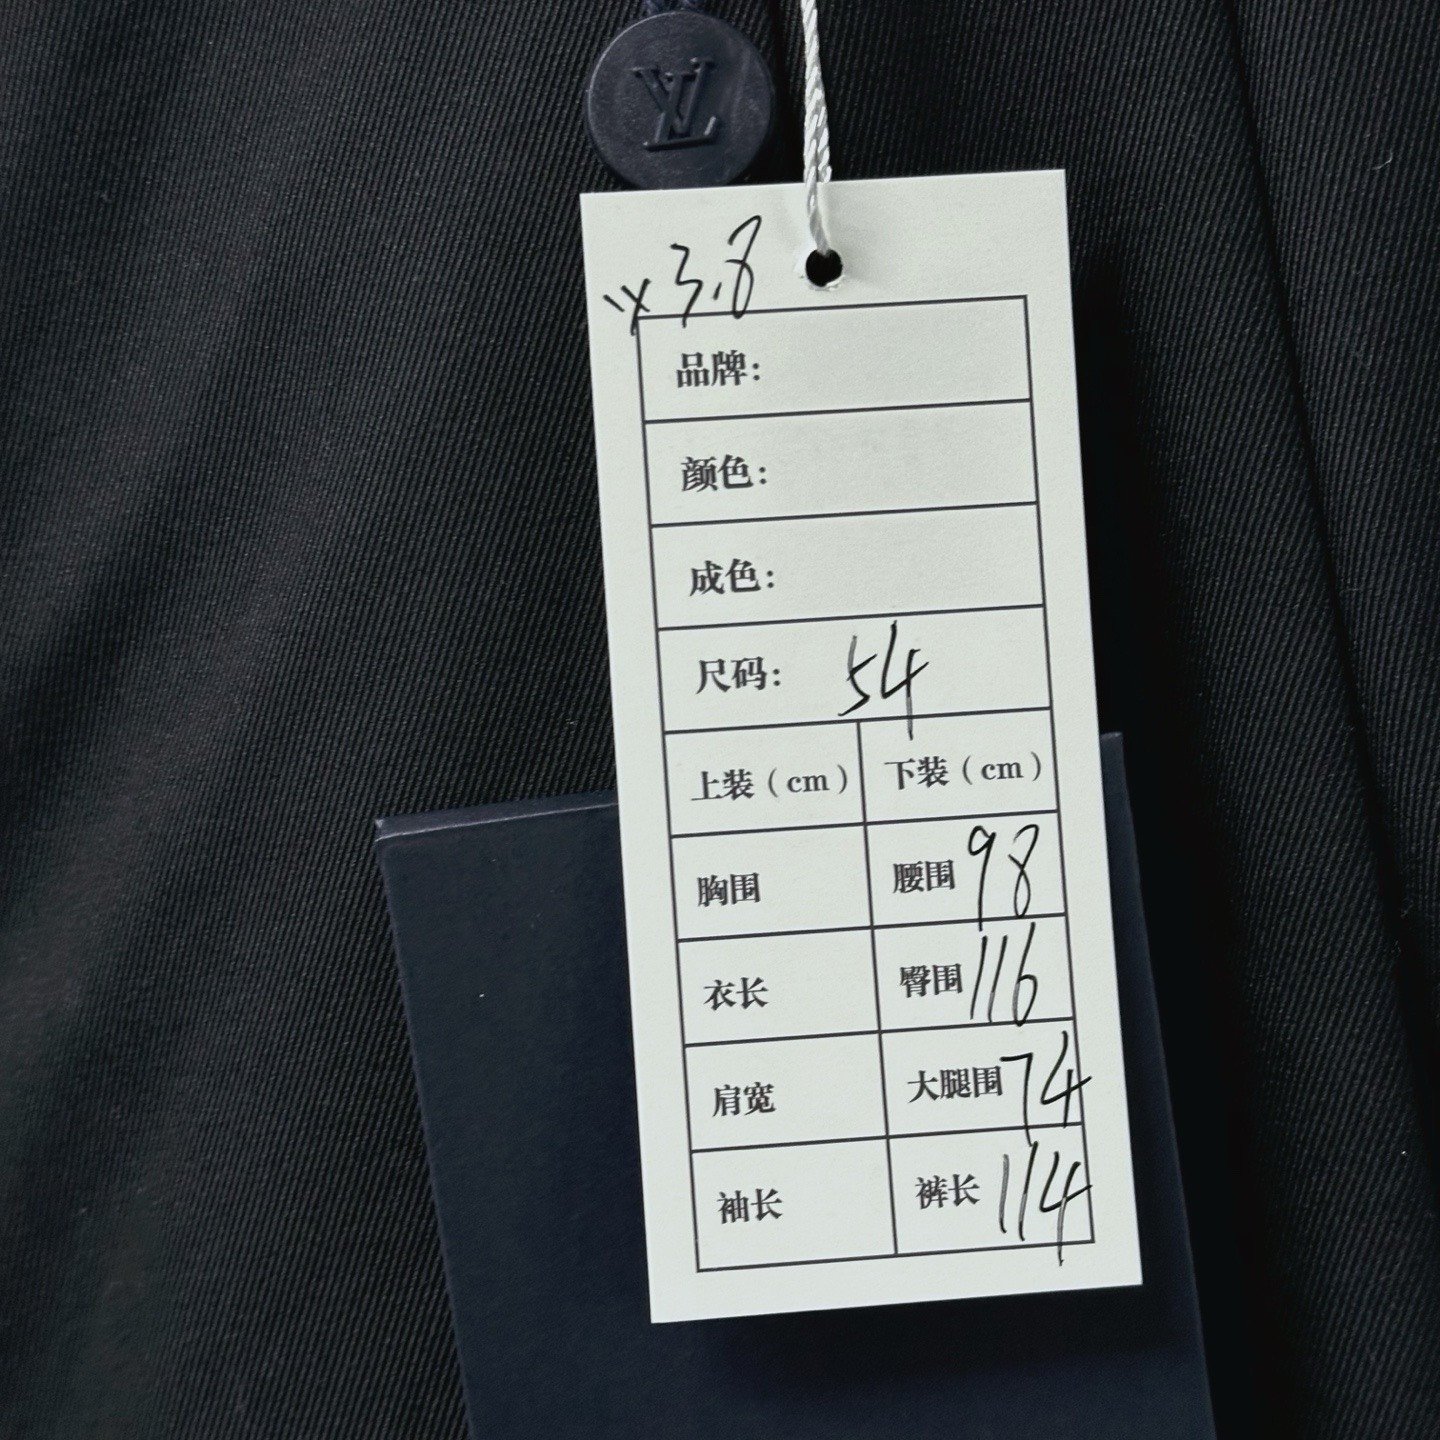 LV
3.8
品牌：
颜色：
成色：
尺码： 54
上装（cm） 下装（cm）
胸围 腰围 98
衣长 臀围 116
肩宽 大腿围 74
袖长 裤长 114